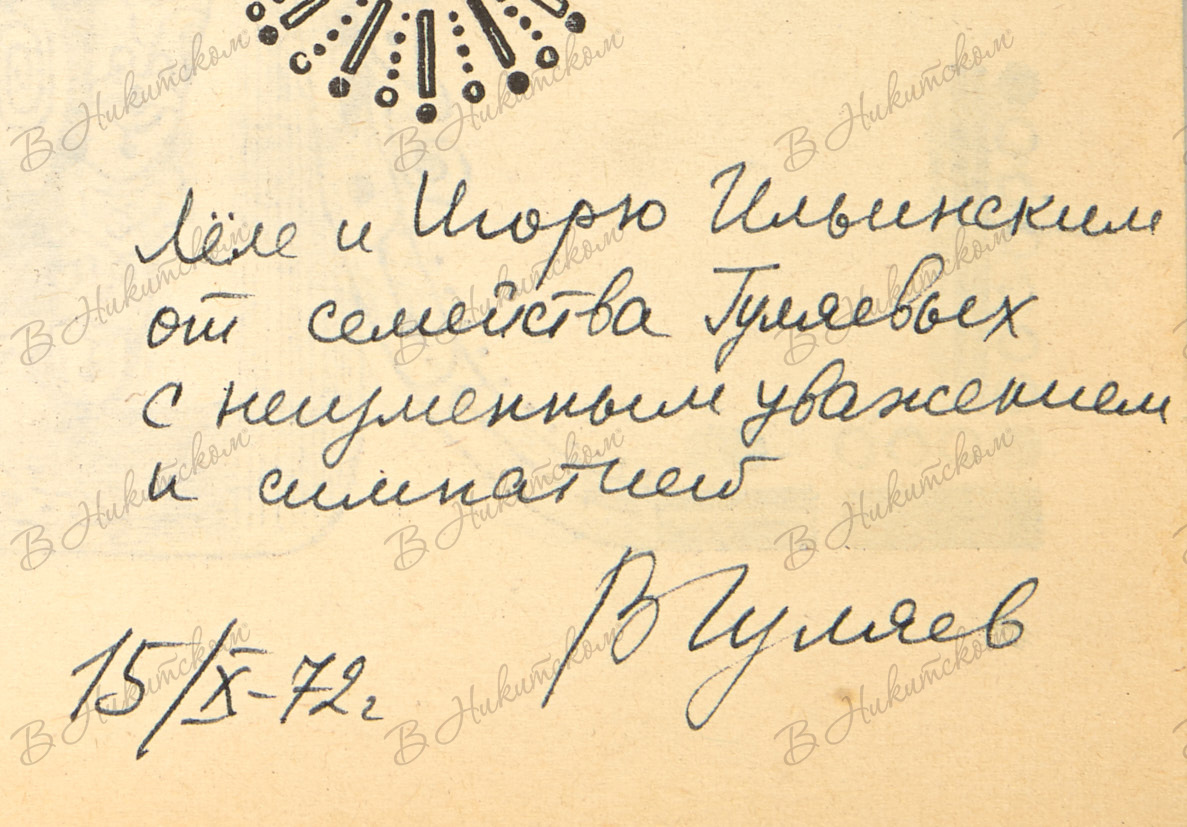 Лёле и Игорю Ильинским
от семейства Гуляевых
с неизменным уважением
и симпатией
В Гуляев
15/X-72г